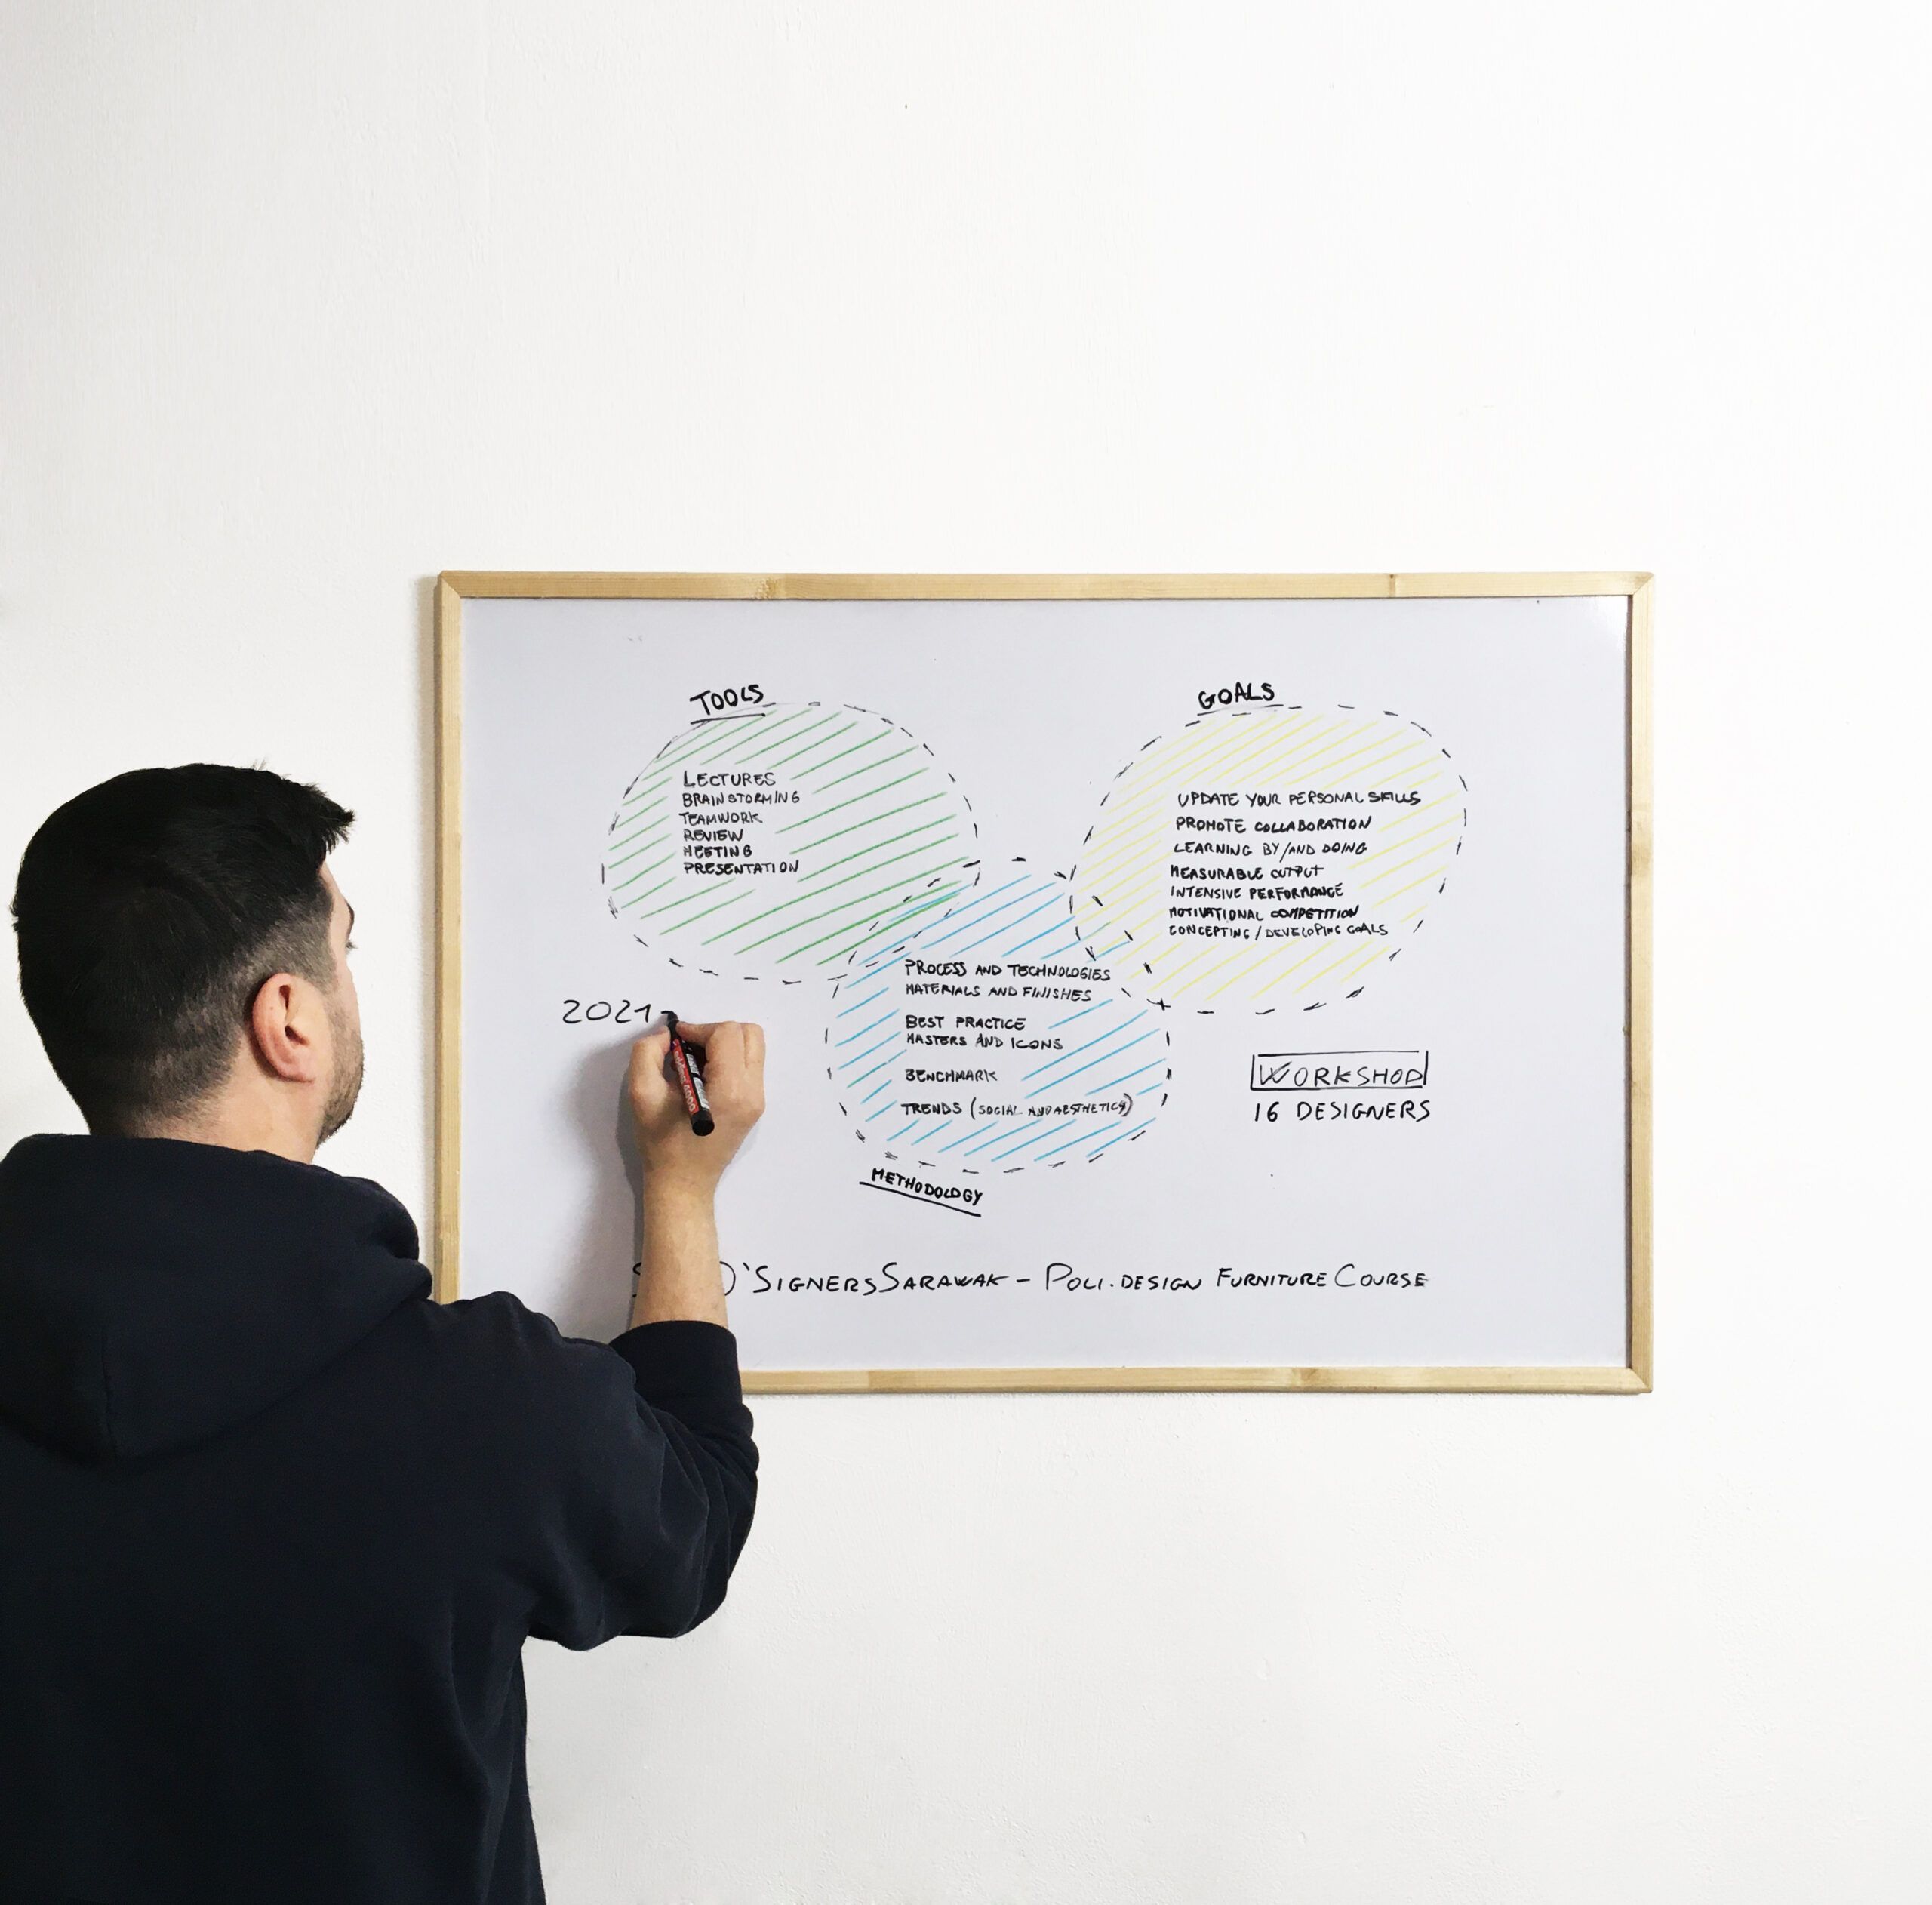 TOOLS
LECTURES
BRAINSTORMING
TEAMWORK
REVIEW
MEETING
PRESENTATION
GOALS
UPDATE YOUR PERSONAL SKILLS
PROMOTE COLLABORATION
LEARNING BY/AND DOING
MEASURABLE OUTPUT
INTENSIVE PERFORMANCE
MOTIVATIONAL COMPETITION
CONCEPTING/DEVELOPING GOALS
PROCESS AND TECHNOLOGIES
MATERIALS AND FINISHES
BEST PRACTICE
MASTERS AND ICONS
BENCHMARK
TRENDS (SOCIAL AND AESTHETICS)
METHODOLOGY
2021-
WORKSHOP
16 DESIGNERS
D'SIGNERSSARAWAK - POLI.DESIGN FURNITURE COURSE